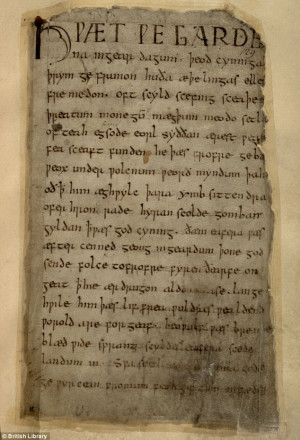 HǷÆT ǷE GARDE
na ingear dagum. þeod cyninga
þrym ge frunon huða æþelingas elle
fremedon. oft scyld scefing sceaþe
þreatum monegū mægþum meodo setla
of teah egsode eorl syððan ærest ƿear
fea sceaft funden he þæs frofre geba
ƿeox under ƿolcnum ƿeorð myndum þah
oð ꝥ him æghƿylc þara ymb sittendra
ofer hron rade hyran scolde gomban
gyldan ꝥ ƿæs god cyning. ðæm eafera ƿæs
æfter cenned geong ingeardum þone god
sende folce tofrofre fyren ðearfe on
geat ꝥ hie ær drugon aldor ase. lange
hƿile him þæs lif frea ƿuldres ƿealdend
ƿorold are for geaf. beoƿulf ƿæs breme
blæd ƿide sprang scyldes eafera scede
landum in. Sƿa guma gode
ge ƿyrcean fromum feoh giftum on fæder
© British Library